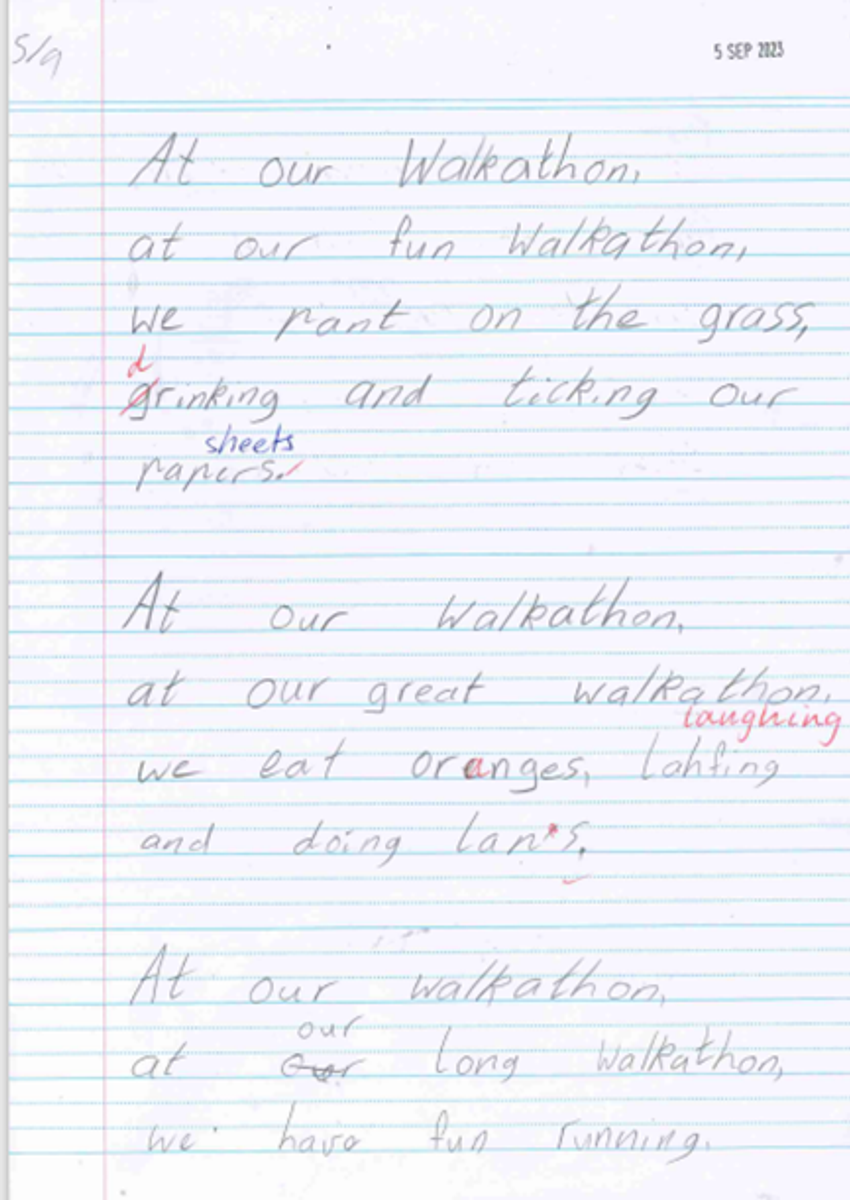 S/9
5 SEP 2023
At our Walkathon,
at our fun Walkathon,
we pant on the grass,
d
grinking and ticking our
sheets
papers.
At our Walkathon,
at our great walkathon,
laughing
we eat oranges, lahfing
and doing lans.
At our walkathon,
our
at our long Walkathon,
we have fun running.